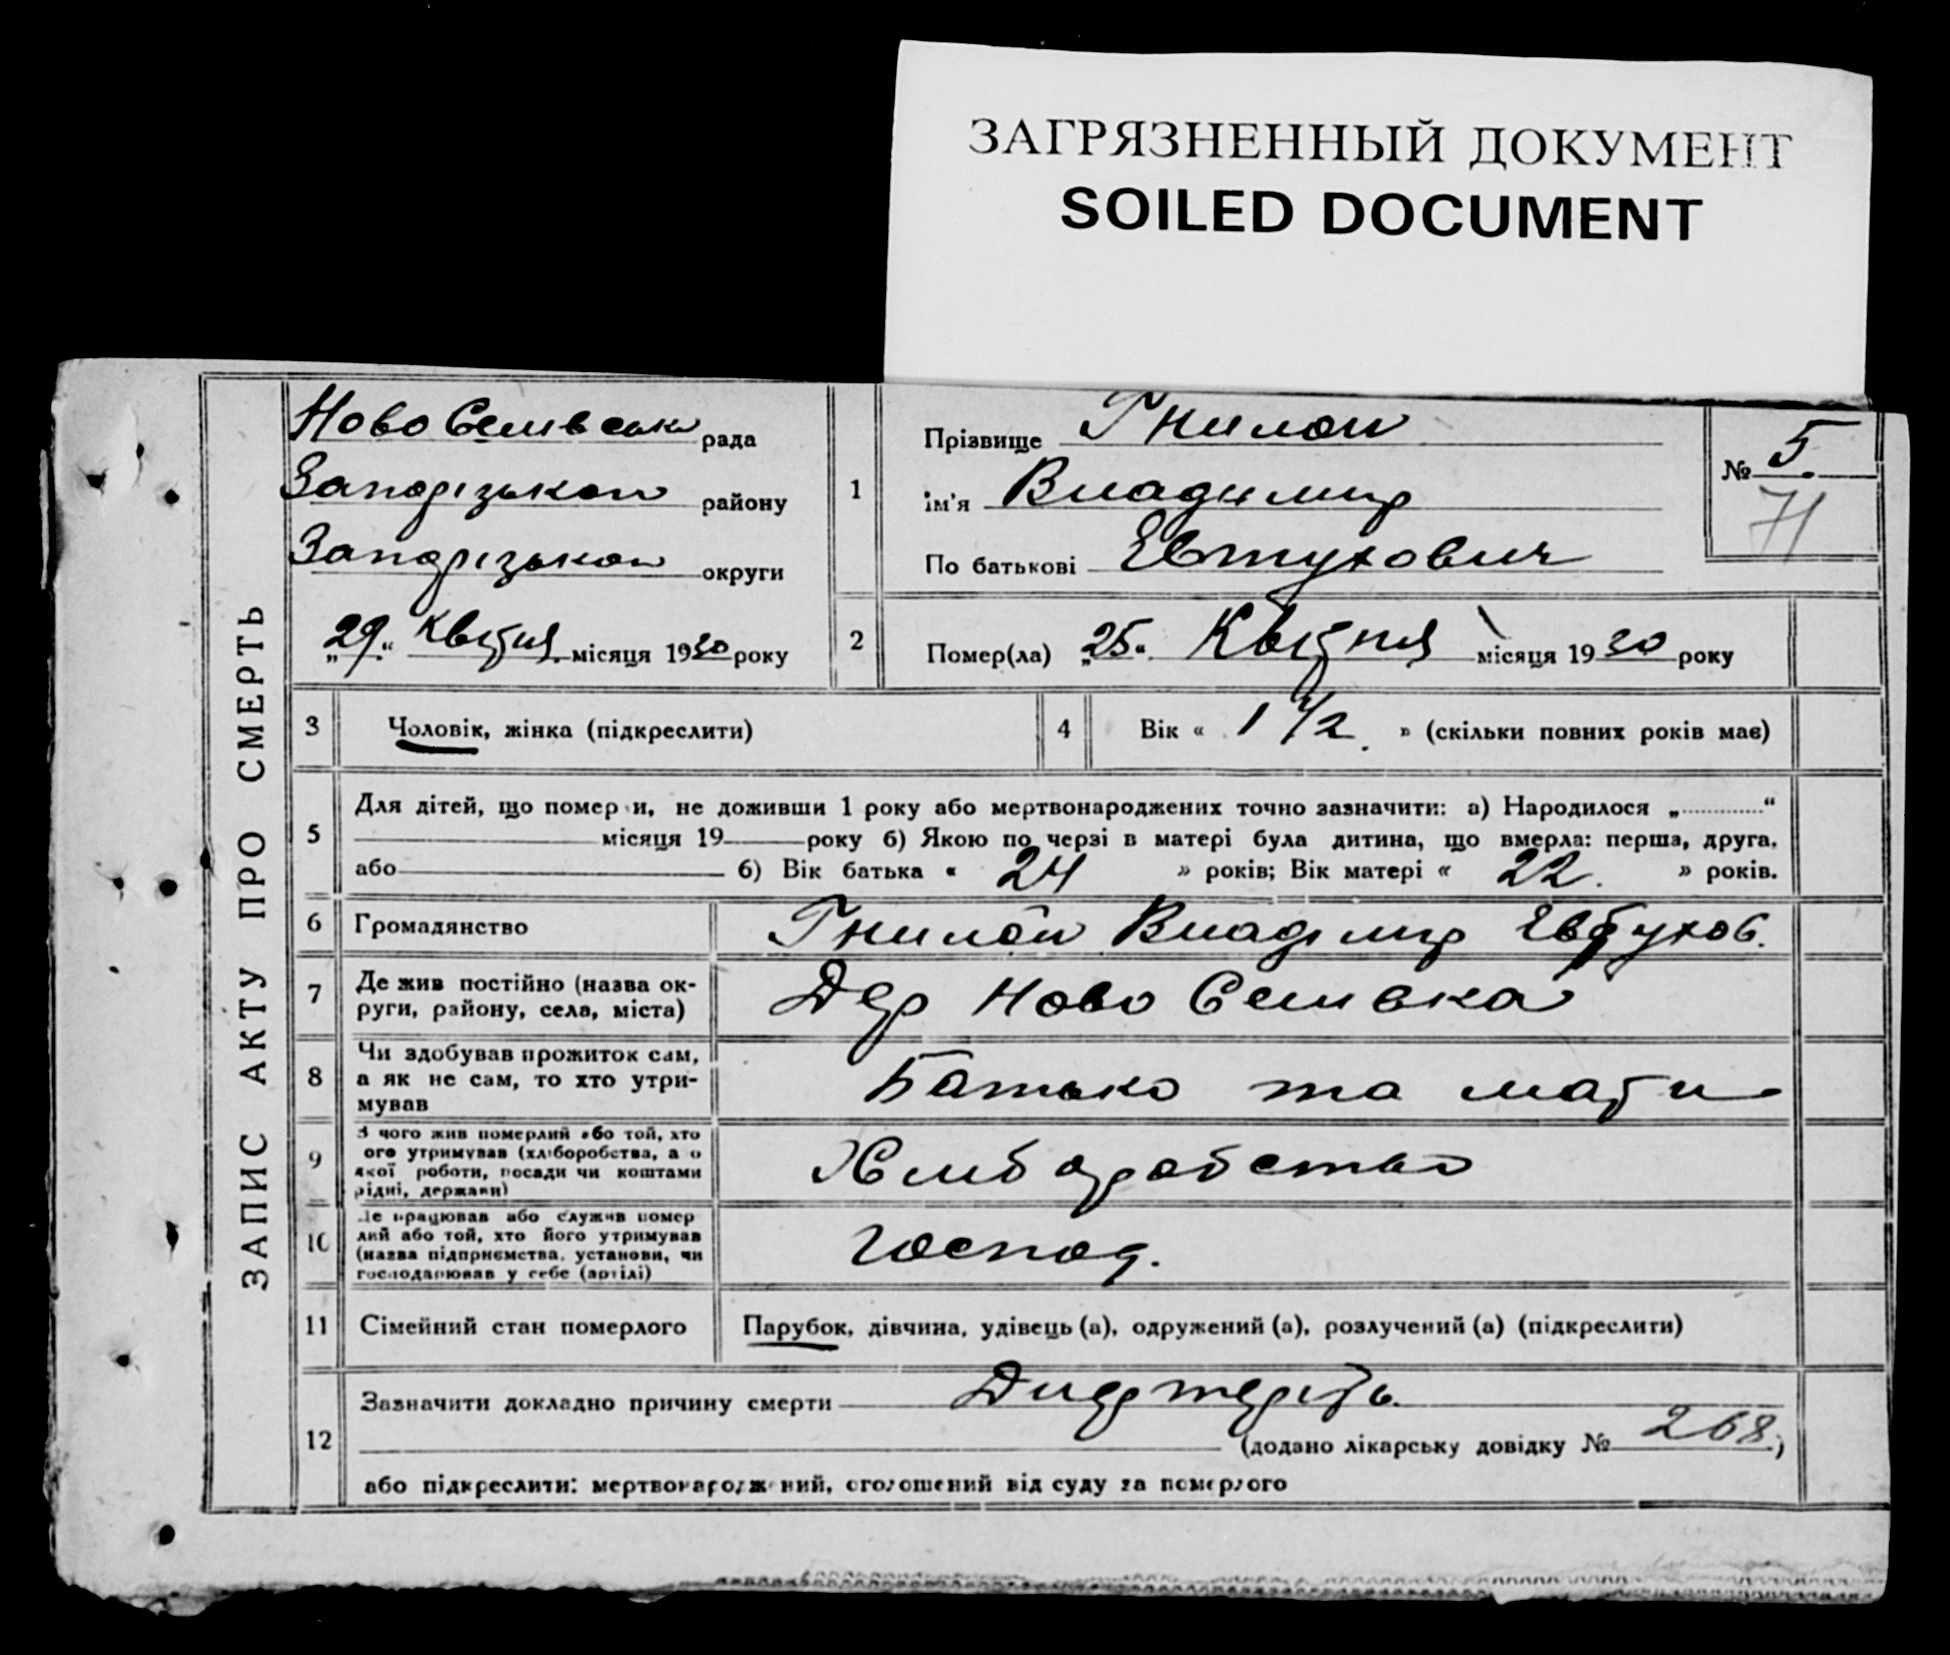 ЗАГРЯЗНЕННЫЙ ДОКУМЕНТ
SOILED DOCUMENT
ЗАПИС АКТУ ПРО СМЕРТЬ
Ново Селивськ рада
Запорізькои району
Запорізькои округи
„29“ Квітня місяця 1930 року
1
Прізвище Гнилой
ім'я Владимир
По батькові Евтухович
№ 5
71
2 Помер(ла) „25“ Квітня місяця 1930 року
3 Чоловік, жінка (підкреслити)
4 Вік « 1 1/2 » (скільки повних років має)
5 Для дітей, що померли, не доживши 1 року або мертвонароджених точно зазначити: а) Народилося „ “
місяця 19 року б) Якою по черзі в матері була дитина, що вмерла: перша, друга,
або б) Вік батька « 24 » років; Вік матері « 22. » років.
6 Громадянство Гнилой Владімир Евтухов.
7 Де жив постійно (назва ок-
руги, району, села, міста) Дер Ново Селивка
8 Чи здобував прожиток сам,
а як не сам, то хто утри-
мував Батько та мати
9 З чого жив померлий або той, хто
ого утримував (хліборобства, а о
якої роботи, посади чи коштами
рідні, держави) Хлиборобство
10 Де працював або служив помер
лий або той, хто його утримував
(назва підприємства, установи, чи
господарював у себе (артілі) Господ.
11 Сімейний стан померлого Парубок, дівчина, удівець (а), одружений (а), розлучений (а) (підкреслити)
12 Зазначити докладно причину смерти Диертеріть.
(додано лікарську довідку № 268.)
або підкреслити: мертвонароджений, оголошений від суду за померлого